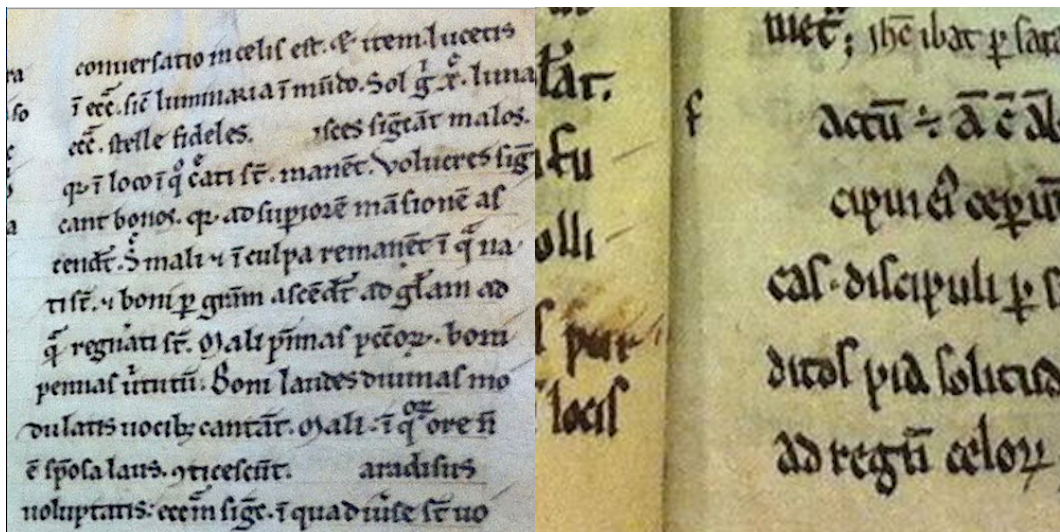 conuersatio in celis est. & item. lucetis
ī ecc̄. sic̄ luminaria ī mūdo. Sol g̊ x̊. luna
ecc̄. stelle fideles. isces sigc̄āt malos.
qꝛ ī loco ī q̊ c̊ati st̄. manēt. Volucres sig̅
cant bonos. qꝛ ad suꝑiorē māsionē as
cendt̄. S̊ mali ⁊ ī culpa remanēt ī qͣ na
ti st̄. ⁊ boni ꝑ gr̄am ascēdt̄ ad gl̄am ad
qͣ regnati st̄. Mali pīnas pecc̄oꝝ. boni
pennas ūtutū. Boni laudes diuinas mo
dulatis uocibꝫ cantāt. Mali. ī qͦꝝ ore n̄
ē sp̄osa laus. ꝯticescūt. aradisus
uoluptatis. ecc̄m sigc̄. ī qua diuīse st̄ uo
ra
so
a
lāt.
tu
olli
s pur
locis
uiet̄; ihc̄ ibat ꝑ sata
f
actū ÷ ā c̄ āl
cipui ei ceꝑūt
cas. discipuli ꝑ s
ditos pia solicitud
ad regnū celoꝝ